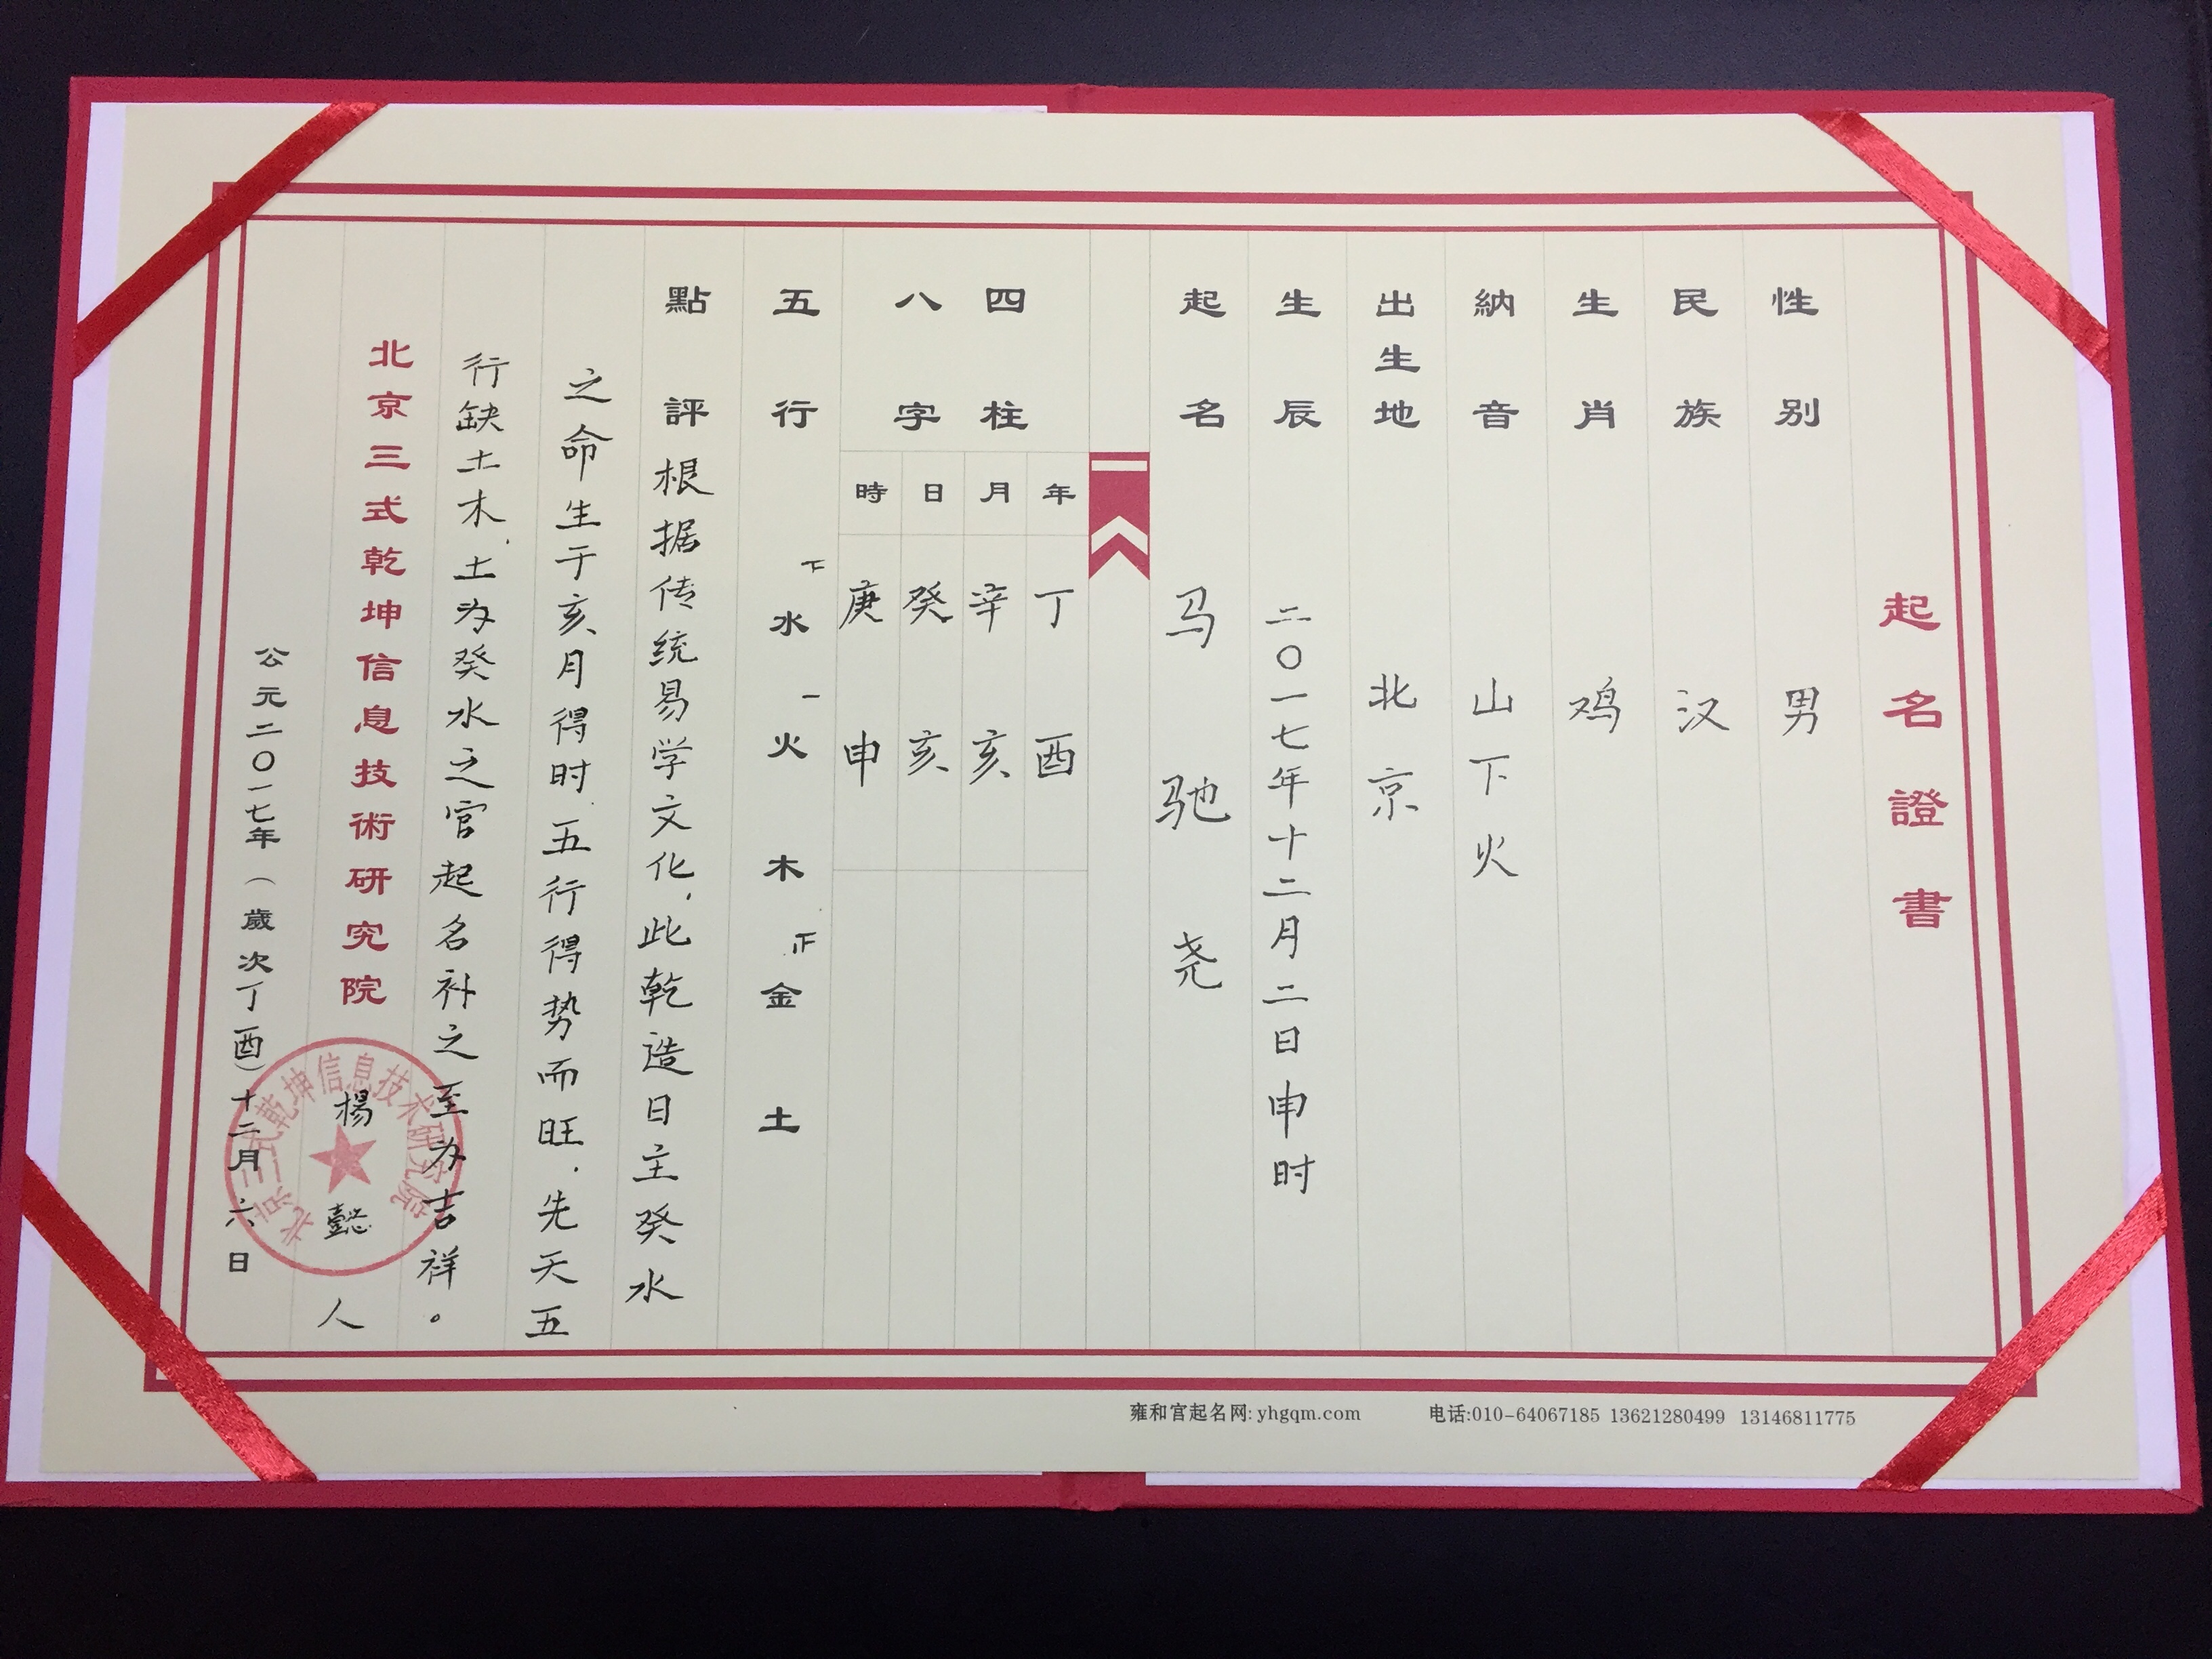 起名證書
性别 男
民族 汉
生肖 鸡
納音 山下火
出生地 北京
生辰 二〇一七年十二月二日申时
起名 马驰尧
四柱
八字
年 丁酉
月 辛亥
日 癸亥
時 庚申
五行 下水 一火 木 正金 土
點評 根据传统易学文化,此乾造日主癸水
之命生于亥月得时.五行得势而旺.先天五
行缺土木,土为癸水之官起名补之至为吉祥。
北京三式乾坤信息技術研究院 楊懿人
北京三式乾坤信息技术研究院
公元二〇一七年(歲次丁酉)十二月六日
雍和宫起名网: yhgqm.com 电话:010-64067185 13621280499 13146811775